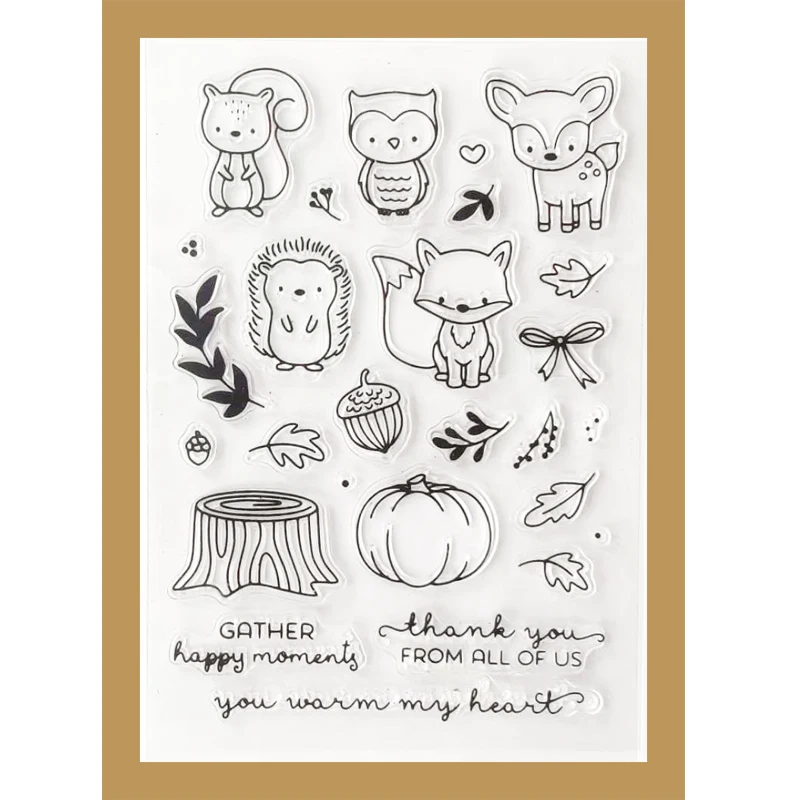 GATHER
happy moments
thank you
FROM ALL OF US
you warm my heart